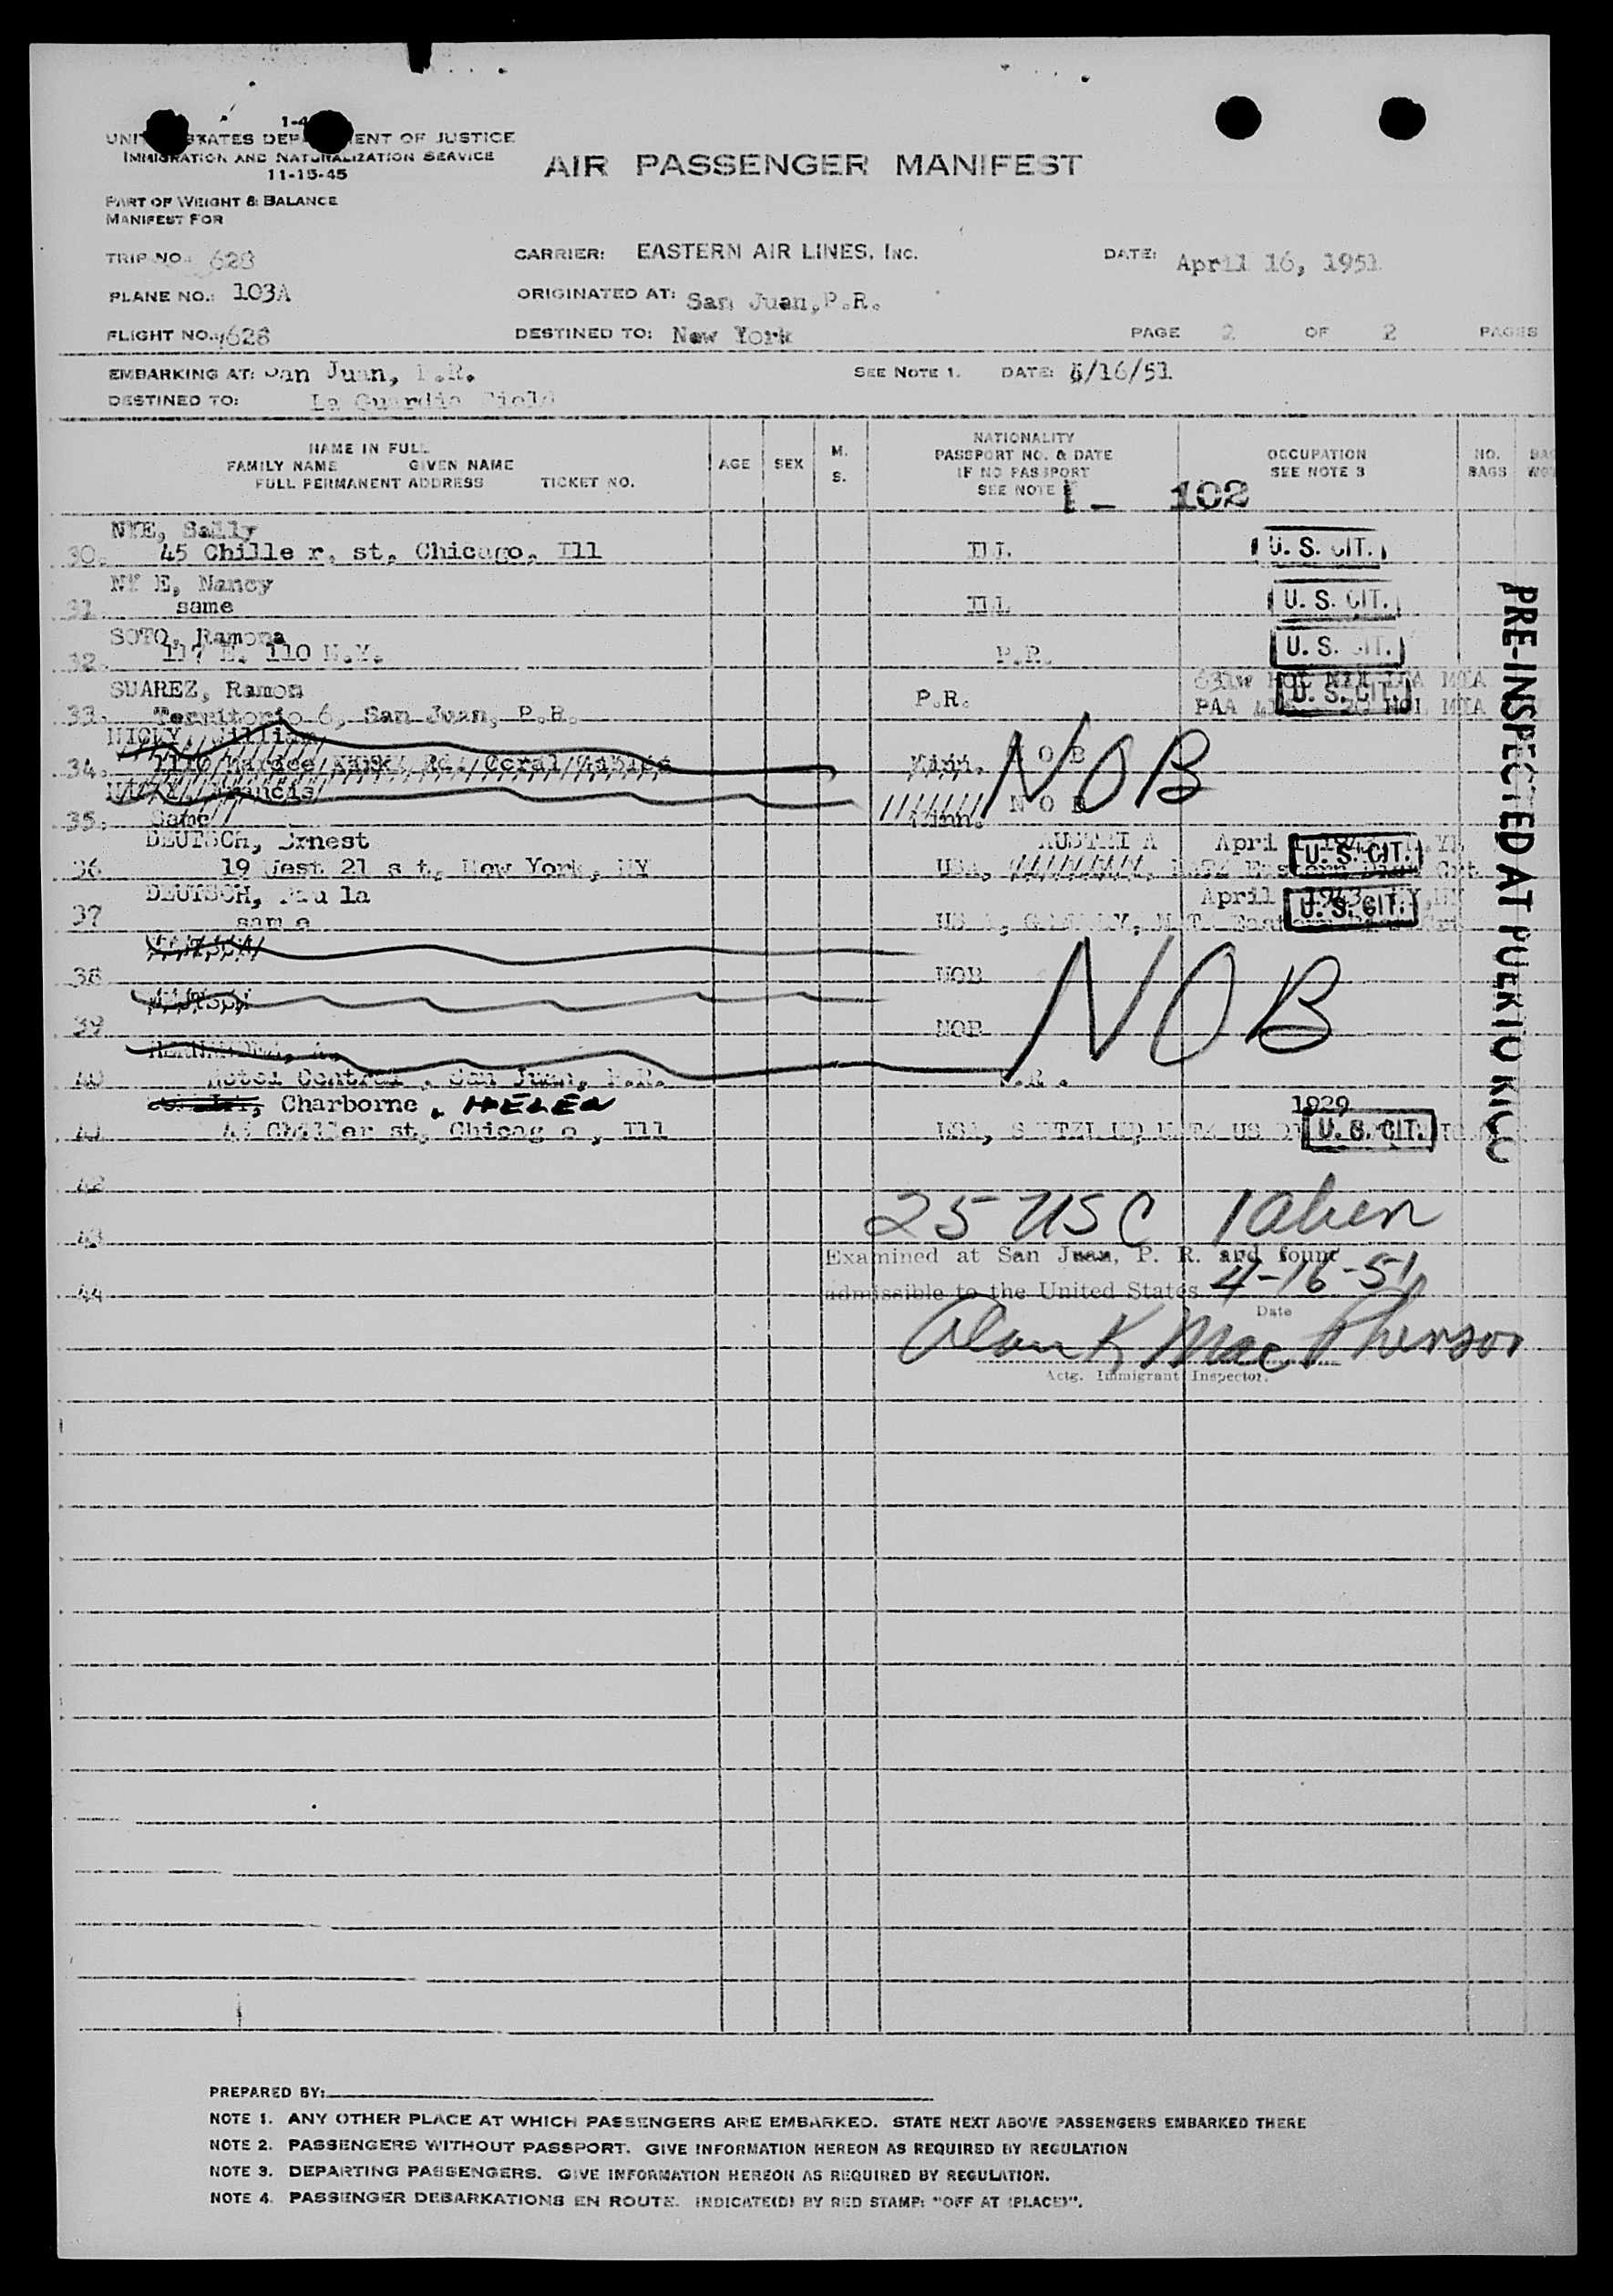 1-4
UNITED STATES DEPARTMENT OF JUSTICE
IMMIGRATION AND NATURALIZATION SERVICE
11-15-45
AIR PASSENGER MANIFEST
PART OF WEIGHT & BALANCE
MANIFEST FOR
TRIP NO. 628 CARRIER: EASTERN AIR LINES, INC. DATE: April 16, 1951
PLANE NO.: 103A ORIGINATED AT: San Juan, P.R.
FLIGHT NO. 628 DESTINED TO: New York PAGE 2 OF 2 PAGES
EMBARKING AT: San Juan, P.R. SEE NOTE 1. DATE: 4/16/51
DESTINED TO: La Guardia Field
NAME IN FULL
FAMILY NAME GIVEN NAME
FULL PERMANENT ADDRESS TICKET NO.
AGE SEX M. S.
NATIONALITY
PASSPORT NO. & DATE
IF NO PASSPORT
SEE NOTE
OCCUPATION
SEE NOTE 3
NO. BAGS
1- 102
NYE, Sally
30. 45 Chille r. st, Chicago, Ill ILL. U. S. CIT.
NY E, Nancy
31. same ILL U. S. CIT.
SOTO, Ramona
32. 117 E. 110 N.Y. P.R. U. S. CIT.
SUAREZ, Ramon
33. Territorio 6, San Juan, P.R. P.R. U. S. CIT.
PAA MIA
William
34. Coral Gables Minn. N O B NOB
Francis
35. Same Minn. N O B
DEUTSCH, Ernest AUSTRI A April
36 19 West 21 s t, New York, NY USA, U. S. CIT.
DEUTSCH, Pau la April 1943
37 sam e U. S. CIT.
38 NOB NOB
39 NOB
HERNANDEZ, A.
40 Hotel Central, San Juan, P.R. P.R.
Charborne, HELEN 1929
41 45 Chiller st, Chicag o, Ill USA, U. S. CIT.
42
43
44
PRE-INSPECTED AT PUERTO RICO
25 USC 1 alien
Examined at San Juan, P. R. and found
admissible to the United States 4-16-51
Date
Alan K MacPherson
Actg. Immigrant Inspector.
PREPARED BY:
NOTE 1. ANY OTHER PLACE AT WHICH PASSENGERS ARE EMBARKED. STATE NEXT ABOVE PASSENGERS EMBARKED THERE
NOTE 2. PASSENGERS WITHOUT PASSPORT. GIVE INFORMATION HEREON AS REQUIRED BY REGULATION
NOTE 3. DEPARTING PASSENGERS. GIVE INFORMATION HEREON AS REQUIRED BY REGULATION.
NOTE 4. PASSENGER DEBARKATIONS EN ROUTE. INDICATE(D) BY RED STAMP: "OFF AT (PLACE)".